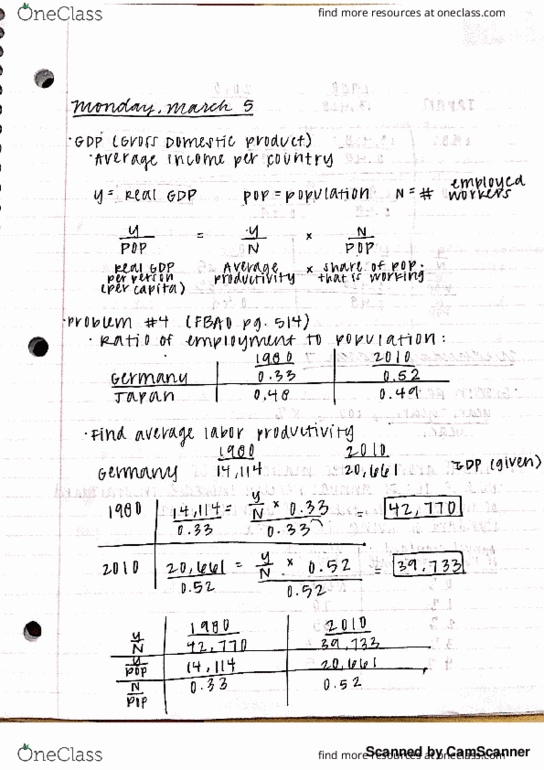 OneClass
find more resources at oneclass.com
Monday, March 5
· GDP (Gross Domestic Product)
· Average income per country
y = Real GDP pop = population N = # employed workers
y/POP = y/N × N/POP
Real GDP per person (per capita) Average productivity × share of pop. that is working
· Problem #4 (FBAD pg. 514)
· Ratio of employment to population:
1980 2010
Germany 0.33 0.52
Japan 0.48 0.49
· Find average labor productivity
1980 2010
Germany 14,114 20,661 GDP (given)
1980 14,114/0.33 = y/N × 0.33/0.33 = 42,770
2010 20,661/0.52 = y/N × 0.52/0.52 = 39,733
1980 2010
y/N 42,770 39,733
y/POP 14,114 20,661
N/POP 0.33 0.52
OneClass
find more resources at oneclass.com
Scanned by CamScanner